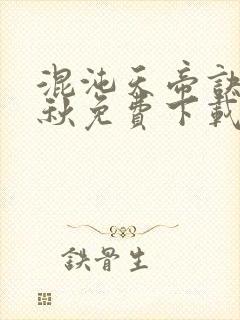 混沌天帝訣
秋免費下載
鉄骨生